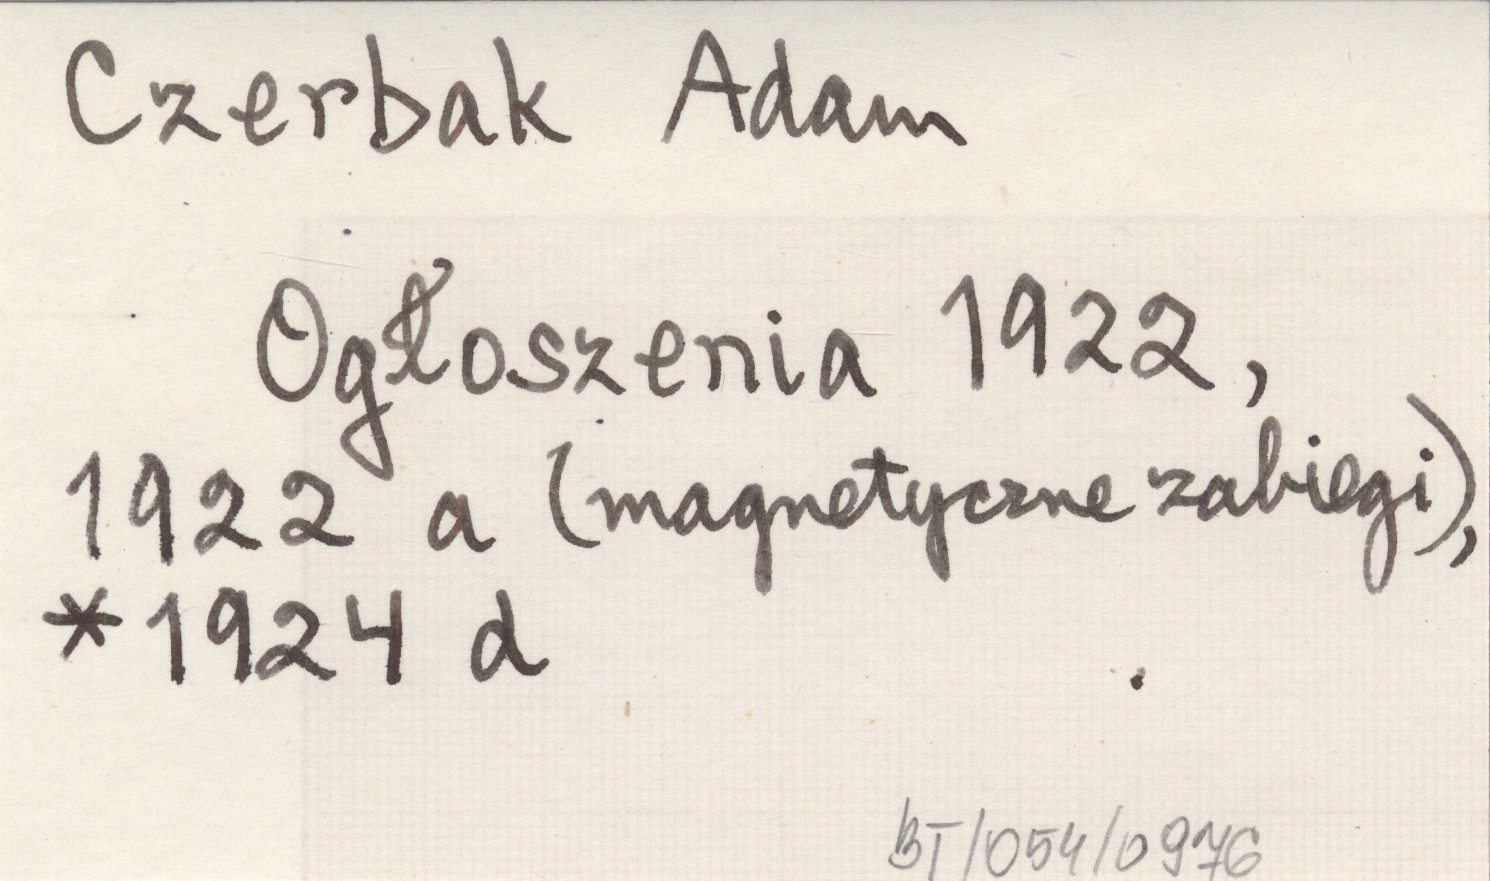 Czerbak Adam
Ogłoszenia 1922,
1922 a (magnetyczne zabiegi),
*1924 d
BT/054/0976